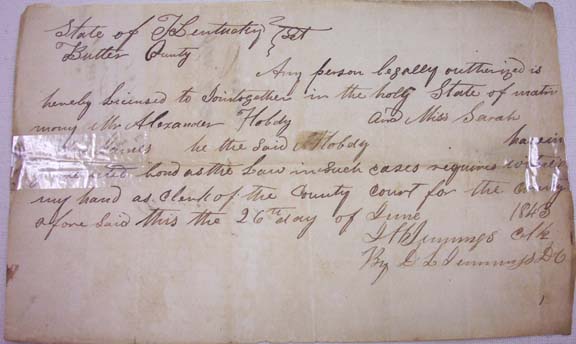 State of Kentucky } Sct
Butler County }
Any person legally outherized is
hereby licensed to Jointogether in the holy State of matri
mony Mr Alexander Hobdy and Miss Sarah
he the said Hobdy having
bond as the Law in such cases requires
my hand as Clerk of the County court for the County
afore said this the 26th day of June 1843
Jennings Clk
By Jennings DC